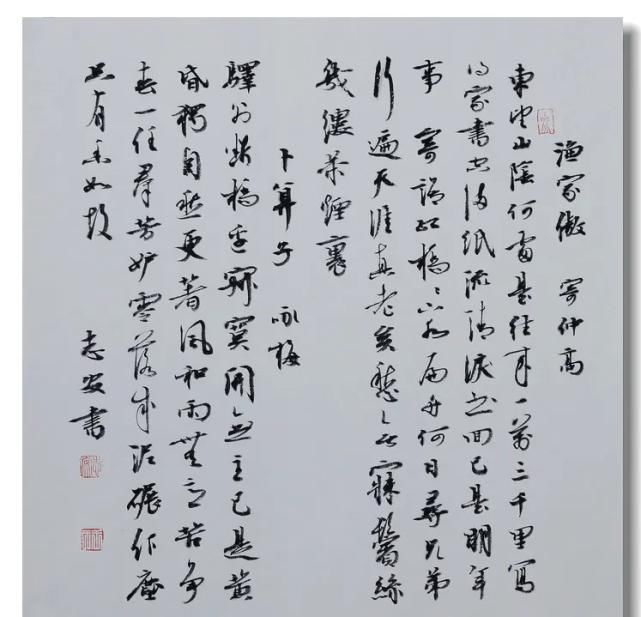 渔家傲 寄仲高
東望山陰何處是往来一萬三千里寫
得家書空滿紙流清淚書回已是明年
事 寄語紅橋橋下水扁舟何日尋兄弟
行遍天涯真老矣愁無寐鬢絲
幾縷茶煙裏
卜算子 咏梅
驛外斷橋邊寂寞開無主已是黄
昏獨自愁更著風和雨無意苦争
春一任羣芳妒零落成泥碾作塵
只有香如故
志安書